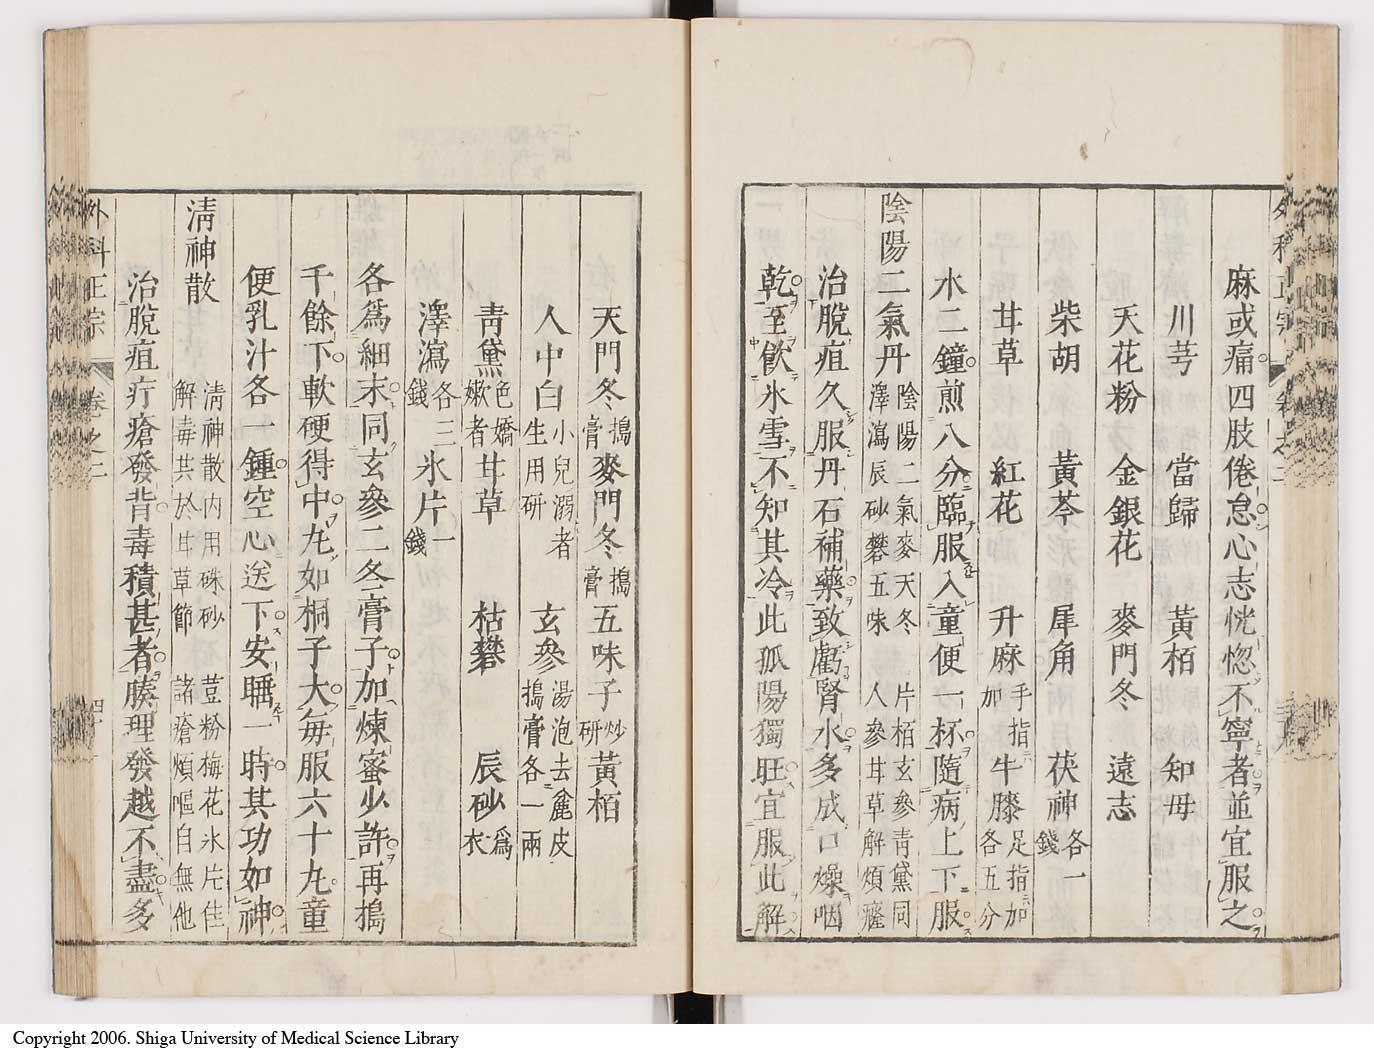 麻或痛四肢倦怠心志恍惚不寧者並宜服之
川芎 當歸 黃栢 知母
天花粉 金銀花 麥門冬 遠志
柴胡 黃芩 犀角 茯神各一錢
甘草 紅花 升麻手指加 牛膝足指加各五分
水二鐘煎八分臨服入童便一杯隨病上下服
陰陽二氣丹 陰陽二氣麥天冬 片栢玄參青黛同
澤瀉辰砂礬五味 人參甘草解煩癃
治脫疽久服丹石補藥致虧腎水多成口燥咽
乾至飮氷雪不知其冷此孤陽獨旺宜服此解
天門冬搗膏 麥門冬搗膏 五味子炒研 黃栢
人中白小兒溺者生用研 玄參湯泡去麄皮搗膏各一兩
靑黛色嬌嫩者 甘草 枯礬 辰砂爲衣
澤瀉各三錢 氷片一錢
各爲細末同玄參二冬膏子加煉蜜少許再搗
千餘下軟硬得中丸如桐子大每服六十丸童
便乳汁各一鍾空心送下安睡一時其功如神
淸神散 淸神散內用硃砂 荳粉梅花氷片佳
解毒共於甘草節 諸瘡煩嘔自無他
治脫疽疔瘡發背毒積甚者腠理發越不盡多
外科正宗 卷之二 四十
Copyright 2006. Shiga University of Medical Science Library